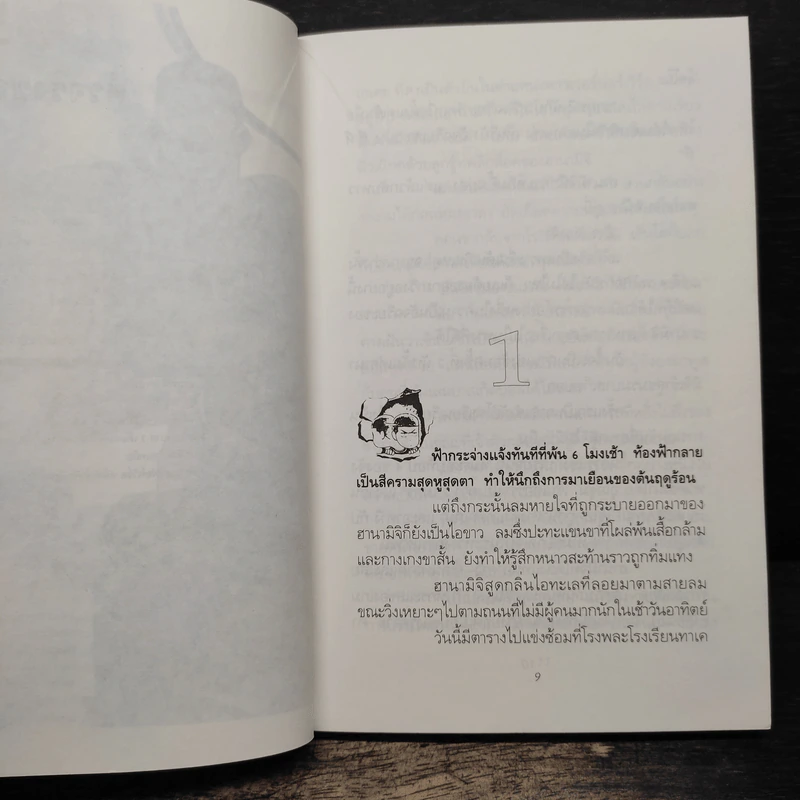 1
ฟ้ากระจ่างแจ้งทันทีที่พ้น 6 โมงเช้า ท้องฟ้ากลาย
เป็นสีครามสุดหูสุดตา ทำให้นึกถึงการมาเยือนของต้นฤดูร้อน
แต่ถึงกระนั้นลมหายใจที่ถูกระบายออกมาของ
ฮานามิจิก็ยังเป็นไอขาว ลมซึ่งปะทะแขนขาที่โผล่พ้นเสื้อกล้าม
และกางเกงขาสั้น ยังทำให้รู้สึกหนาวสะท้านราวถูกทิ่มแทง
ฮานามิจิสูดกลิ่นไอทะเลที่ลอยมาตามสายลม
ขณะวิ่งเหยาะๆไปตามถนนที่ไม่มีผู้คนมากนักในเช้าวันอาทิตย์
วันนี้มีตารางไปแข่งซ้อมที่โรงพละโรงเรียนทาเค
9